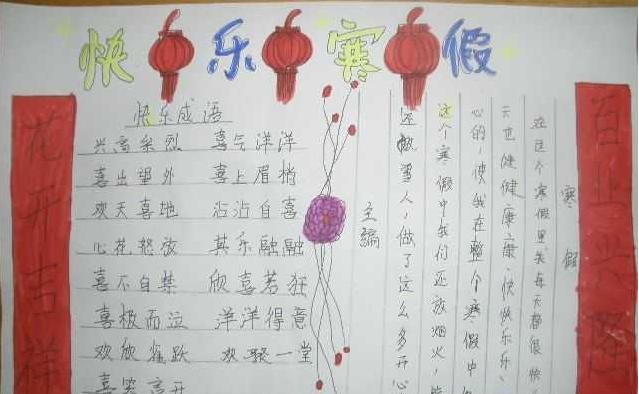 快乐寒假
花开吉祥
快乐成语
兴高采烈 喜气洋洋
喜出望外 喜上眉梢
欢天喜地 沾沾自喜
心花怒放 其乐融融
喜不自禁 欣喜若狂
喜极而泣 洋洋得意
欢欣雀跃 欢聚一堂
喜笑言开
百业兴隆
寒假
在这个寒假里,我每天都很快
天也健健康康、快快乐乐、
心的,使我在整个寒假中
这个寒假中我们还放烟火,
还做雪人,做了这么多开心
主编